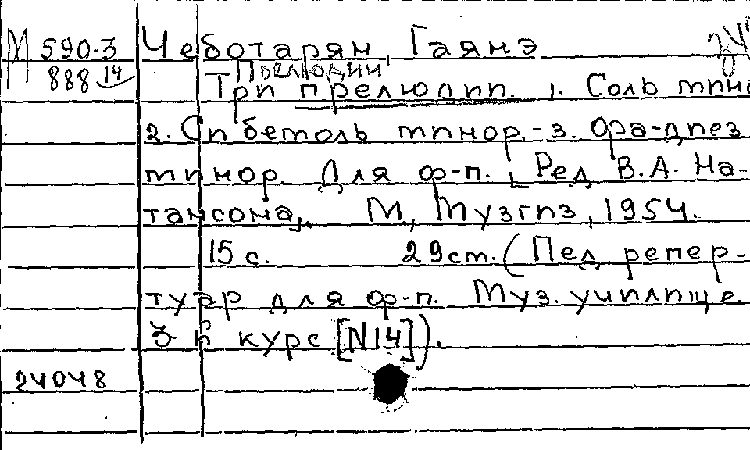 М 590-3 Чеботарян, Гаянэ
888 14
Прелюдии,
Три прелюдии. 1. Соль мин
2. Си бемоль минор.-3. Фа-диез
минор. Для ф-п. [Ред. В.А. На-
тансона]. М., Музгиз, 1954.
15 с. 29 см. (Пед. репер-
туар для ф-п. Муз. училище.
3 курс [N14]).
24048